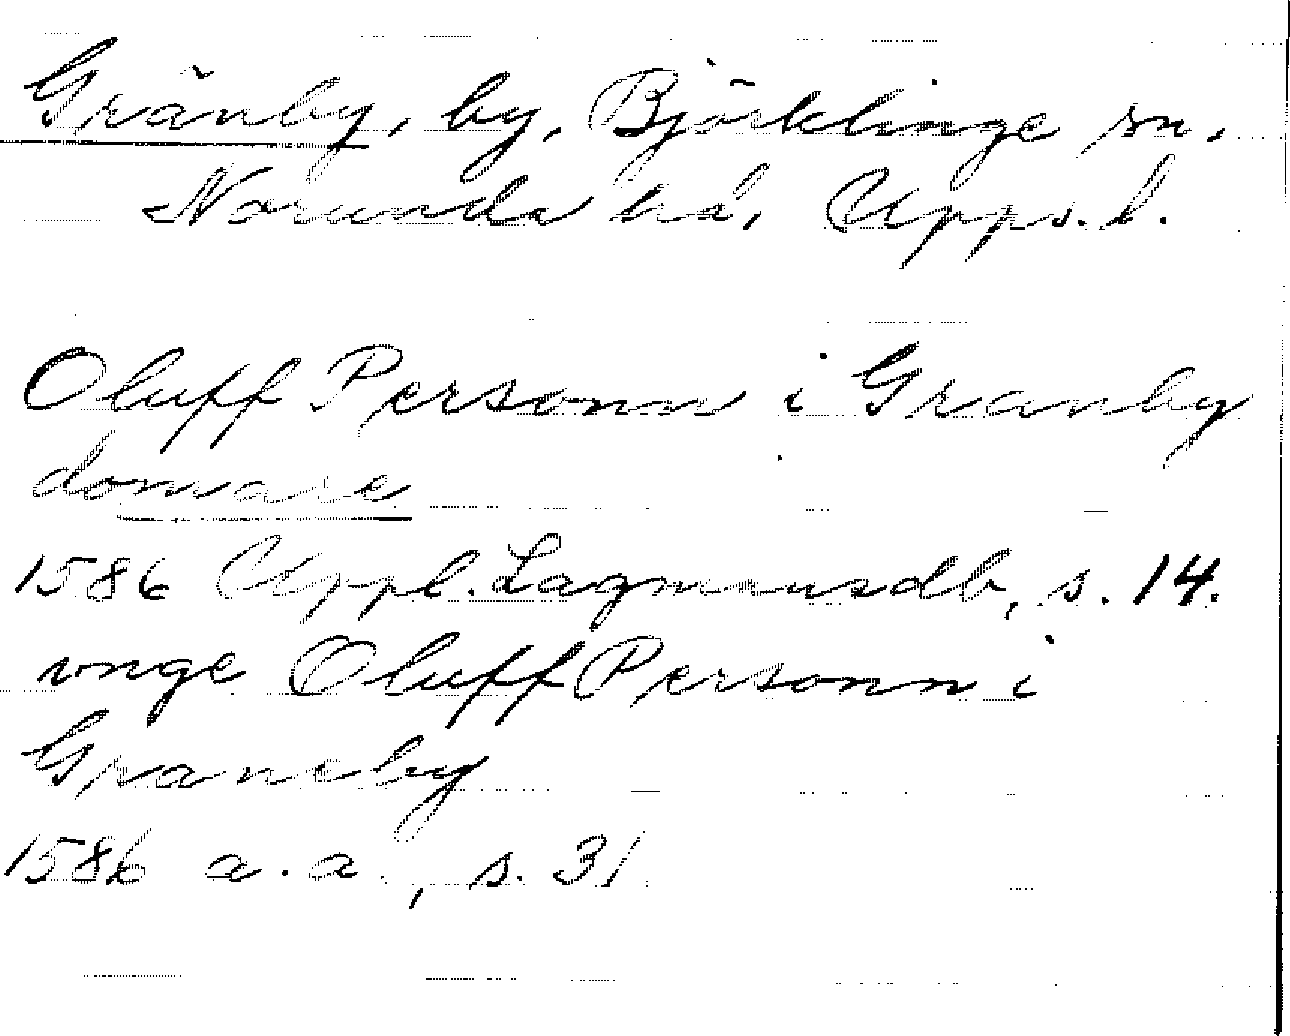 Gränby, by, Björklinge sn.
Norunda hd, Upps. l.
Oluff Personn i Granby
domare
1586 Uppl. Lagmansdb, s. 14.
vnge Oluff Personn i
Graneby
1586 a. a., s. 31